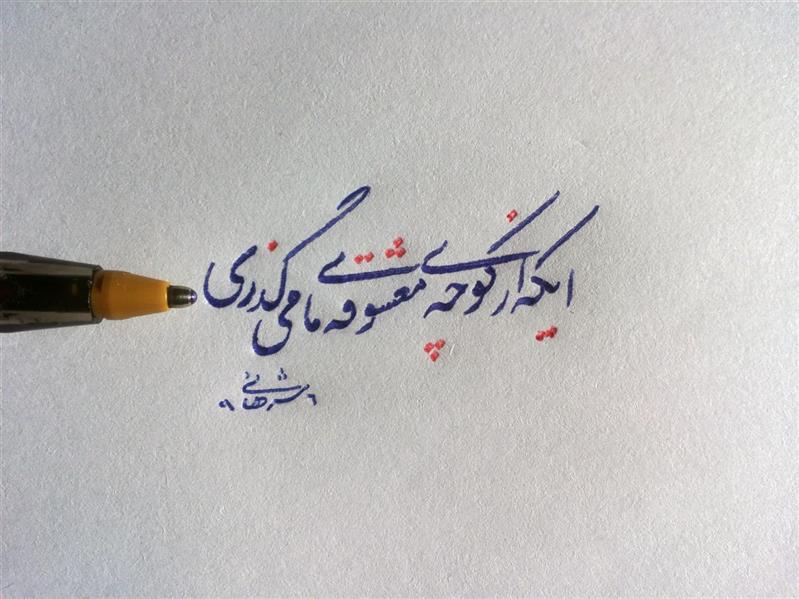 ایکه از کوچه ی معشوقه ی ما می گذری